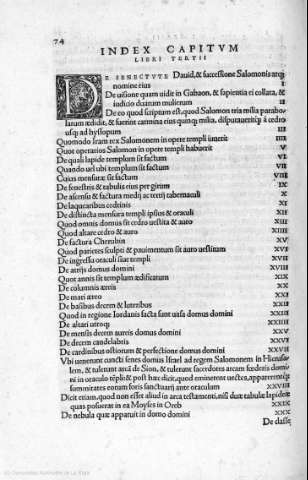 74
INDEX CAPITVM
LIBRI TERTII
DE SENECTVTE Dauid, & successione Salomonis atq;
nomine eius I
De uisione quam uidit in Gabaon, & sapientia ei collata, &
iudicio duarum mulierum II
De eo quod scriptum est, quod Salomon tria milia parabo-
larum ædidit, & fuerint carmina eius quinq; milia, disputaueritq; à cedro
usq; ad hyssopum III
Quomodo Iram rex Salomonem in opere templi iuuerit IIII
Quot operarios Salomon in opere templi habuerit V
De quali lapide templum sit factum VI
Quando uel ubi templum sit factum VII
Cuius mensuræ sit factum VIII
De fenestris & tabulis eius per girum IX
De ascensu & factura medij ac tertij tabernaculi X
De laquearibus cedrinis XI
De distincta mensura templi ipsius & oraculi XII
Quod omnis domus sit cedro uestita & auro XIII
Quod altare cedro & auro XIIII
De factura Cherubin XV
Quod parietes sculpti & pauimentum sit auro uestitum XVI
De ingressu oraculi siue templi XVII
De atrijs domus domini XVIII
Quot annis sit templum ædificatum XIX
De columnis æreis XX
De mari æreo XXI
De basibus decem & luteribus XXII
Quod in regione Iordanis facta sunt uasa domus domini XXIII
De altari utroq; XXIIII
De mensis decem aureis domus domini XXV
De decem candelabris XXVI
De cardinibus ostiorum & perfectione domus domini XXVII
Vbi uenerunt cuncti senes domus Israel ad regem Salomonem in Hierusa-
lem, & tulerunt arcā de Sion, & tulerunt sacerdotes arcam fœderis domi-
ni in oraculū tēpli & post hæc dicit, quod eminerent uectes, apparerentq;
summitates eorum foris sanctuarij ante oraculum XXVIII
Dicit etiam, quod non esset aliud in arca testamenti, nisi duæ tabulæ lapideæ
quas posuerat in ea Moyses in Oreb XXIX
De nebula quæ apparuit in domo domini XXX